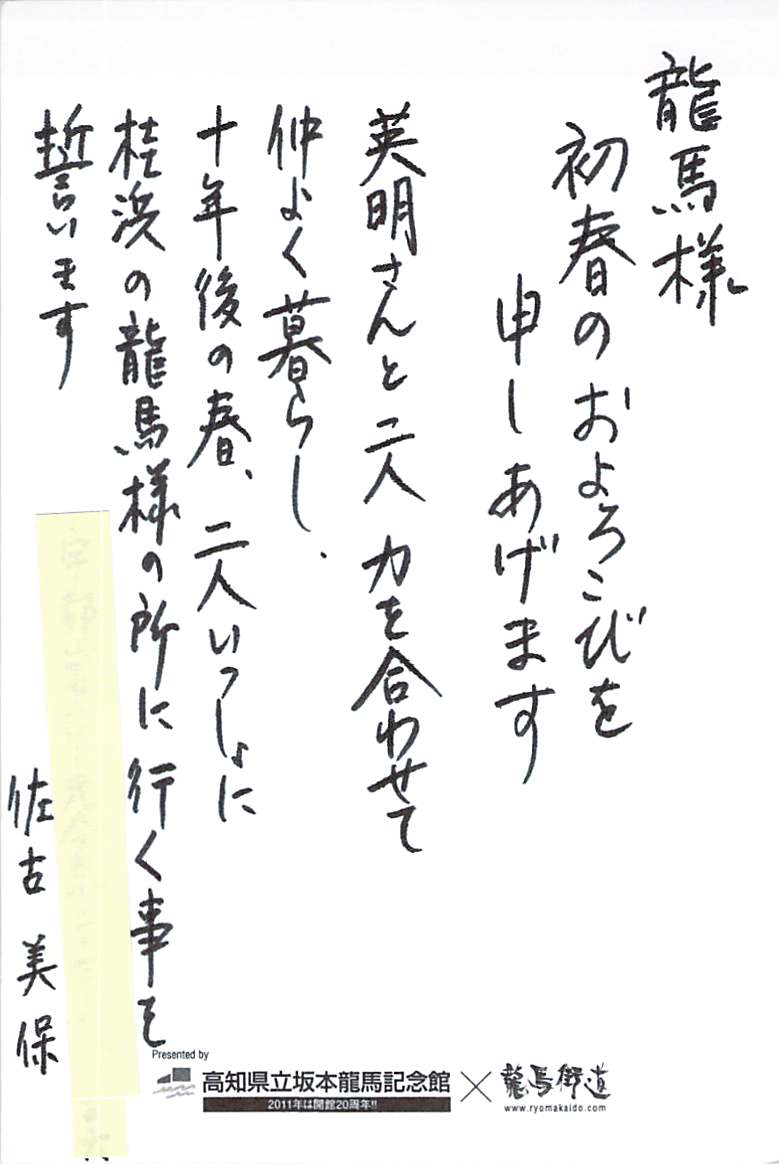 龍馬様
初春のおよろこびを
申しあげます
英明さんと二人 力を合わせて
仲よく暮らし、
十年後の春、二人いっしょに
桂浜の龍馬様の所に行く事を
誓います
佐古 美保
Presented by
高知県立坂本龍馬記念館
2011年は開館20周年!!
龍馬街道
www.ryomakaido.com